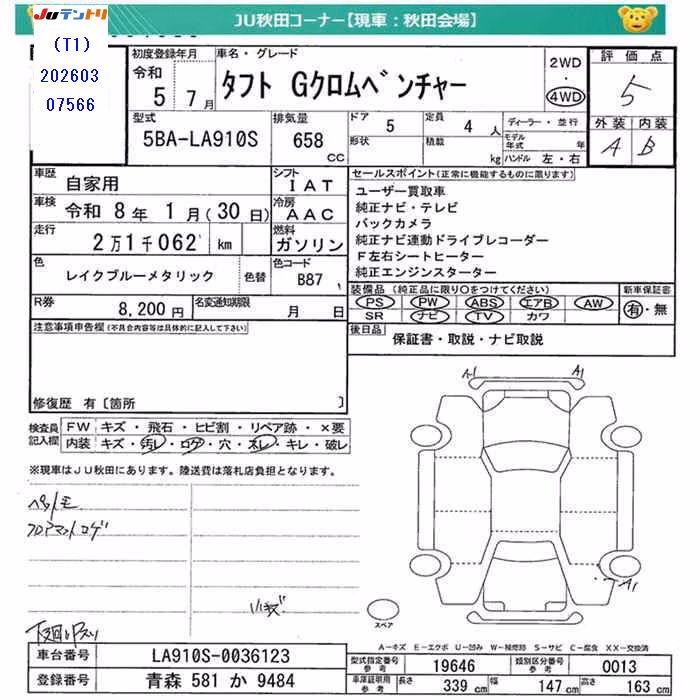 JUテントリ
JU秋田コーナー【現車：秋田会場】
(T1)
202603
07566
初度登録年月
令和
5 7月
車名・グレード
タフト Gクロムベンチャー
2WD
・
4WD
評価点
5
外装 内装
A B
型式
5BA-LA910S
排気量
658
CC
ドア
5
定員
4 人
形状
積載
kg
ディーラー・並行
モデル年式 年
ハンドル 左・右
車歴
自家用
シフト
IAT
車検
令和 8年 1月(30日)
冷房
AAC
走行
2万1千062 km
燃料
ガソリン
色
レイクブルーメタリック
色替
色コード
B87
R券
8,200円
名変通知期限
月 日
セールスポイント(正常に機能するものに限ります)
ユーザー買取車
純正ナビ・テレビ
バックカメラ
純正ナビ連動ドライブレコーダー
F左右シートヒーター
純正エンジンスターター
装備品(純正品に限り○をつけてください)
PS PW ABS エアB AW
SR ナビ TV カワ
新車保証書
有・無
後日品
保証書・取説・ナビ取説
注意事項申告欄(不具合内容等は具体的に記入して下さい)
修復歴 有〔箇所 〕
検査員記入欄
FW キズ・飛石・ヒビ割・リペア跡・×要
内装 キズ・汚レ・コゲ・穴・スレ・キレ・破レ
※現車はJU秋田にあります。陸送費は落札店負担となります。
ペットモ
フロアマットコゲ
小キズ
下廻りサスリ
A1
A1
A1
スペア
A－キズ E－エクボ U－凹み W－補修跡 S－サビ C－腐食 XX－交換済
車台番号
LA910S-0036123
型式指定番号
19646
類別区分番号
0013
登録番号
青森 581 か 9484
車庫証明用参考
長さ 339 cm
幅 147 cm
高さ 163 cm